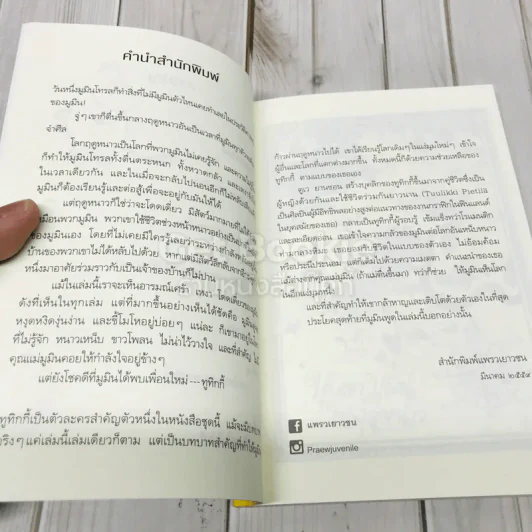 คำนำสำนักพิมพ์
วันหนึ่งมูมินโทรลก็ทำสิ่งที่ไม่มีมูมินตัวไหนเคยทำเลยใน
ของมูมิน!
จู่ๆ เขาก็ตื่นขึ้นกลางฤดูหนาวอันเป็นเวลาที่มูมินทุก
จำศีล
โลกฤดูหนาวเป็นโลกที่พวกมูมินไม่เคยรู้จัก และความ
ก็ทำให้มูมินโทรลทั้งตื่นตระหนก ทั้งหวาดกลัว และ
ในเวลาเดียวกัน และในเมื่อจะกลับไปนอนอีกก็ไม่
มูมินก็ต้องเรียนรู้และต่อสู้เพื่อจะอยู่กับมันให้ได้
แต่ฤดูหนาวก็ใช่ว่าจะโดดเดี่ยว มีสัตว์มากมาย
เหมือนพวกมูมิน พวกเขาใช้ชีวิตช่วงหน้าหนาวอย่าง
ของมูมินเอง โดยที่ไม่เคยมีใคร
บ้านของพวกเขาไม่ได้หลับไปด้วย หาก
หนึ่งมาอาศัยร่วมราวกับเป็นเจ้าของบ้านก็ไม่ปาน
แม้ในเล่มนี้เราจะเห็นอารมณ์เศร้า เหงา โดดเดี่ยว
ดังที่เห็นในทุกเล่ม แต่ที่มากขึ้นอย่างเห็นได้ชัดคือ
หงุดหงิดงุ่นง่าน และขี้โมโหอยู่บ่อยๆ แน่ละ ก็เขามาอยู่ใน
ที่ไม่รู้จัก หนาวเหน็บ ขาวโพลน ไม่น่าไว้วางใจ และที่สำคัญ
คุณแม่มูมินคอยให้กำลังใจอยู่ข้างๆ
แต่ยังโชคดีที่มูมินได้พบเพื่อนใหม่ --- ทูทิกกี้
ทูทิกกี้เป็นตัวละครสำคัญตัวหนึ่งในหนังสือชุดนี้ แม้จะมีบทบาท
จริงๆ แค่เล่มนี้เล่มเดียวก็ตาม แต่เป็นบทบาทสำคัญที่ทำให้
ก้าวผ่านฤดูหนาวไปได้ เขาได้เรียนรู้โลกเดิมๆ ในแง่มุมใหม่ๆ เข้าใจ
ผู้อื่นและโลกที่แตกต่างมากขึ้น ทั้งหมดนี้ก็ด้วยความช่วยเหลือของ
ทูทิกกี้ ตามแบบของเธอเอง
ตูเว ยานซอน สร้างบุคลิกของทูทิกกี้ขึ้นมาจากคู่ชีวิตซึ่งเป็น
ผู้หญิงด้วยกันและใช้ชีวิตร่วมกันยาวนาน (Tuulikki Pietila
เป็นศิลปินผู้มีอิทธิพลอย่างสูงต่อแนวทางของงานกราฟิกในฟินแลนด์
ในยุคสมัยของเธอ) กลายเป็นทูทิกกี้ผู้รอบรู้ เข้มแข็งทว่าโรแมนติก
และละเอียดอ่อน เธอเข้าใจความกลัวของมูมินต่อโลกอันเหน็บหนาว
ที่ไม่คุ้นเคย เธอแนะให้เขาใช้ชีวิตในแบบของตัวเอง ไม่อ้อมค้อม
หรือประนีประนอม แต่ก็เติมไปด้วยความเมตตา คำแนะนำของเธอ
แม้ต่างจากที่คุณแม่มูมิน (ถ้าแม่ตื่นขึ้นมา) ทว่าก็ช่วย ให้มูมินเห็นโลก
ในอีกแง่มุมหนึ่ง
และที่สำคัญทำให้เขากล้าหาญและเติบโตด้วยตัวเองในที่สุด
ประโยคสุดท้ายที่มูมินพูดในเล่มนี้บอกอย่างนั้น
สำนักพิมพ์แพรวเยาวชน
มีนาคม ๒๕๕๙
แพรวเยาวชน
Praewjuvenile